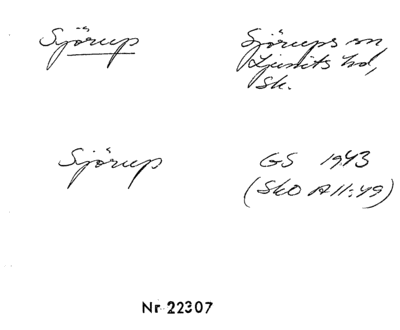 Sjörup
Sjörups sn
Ljunits hd,
Sk.
Sjörup
GS 1943
(SkO A11:49)
Nr 22307